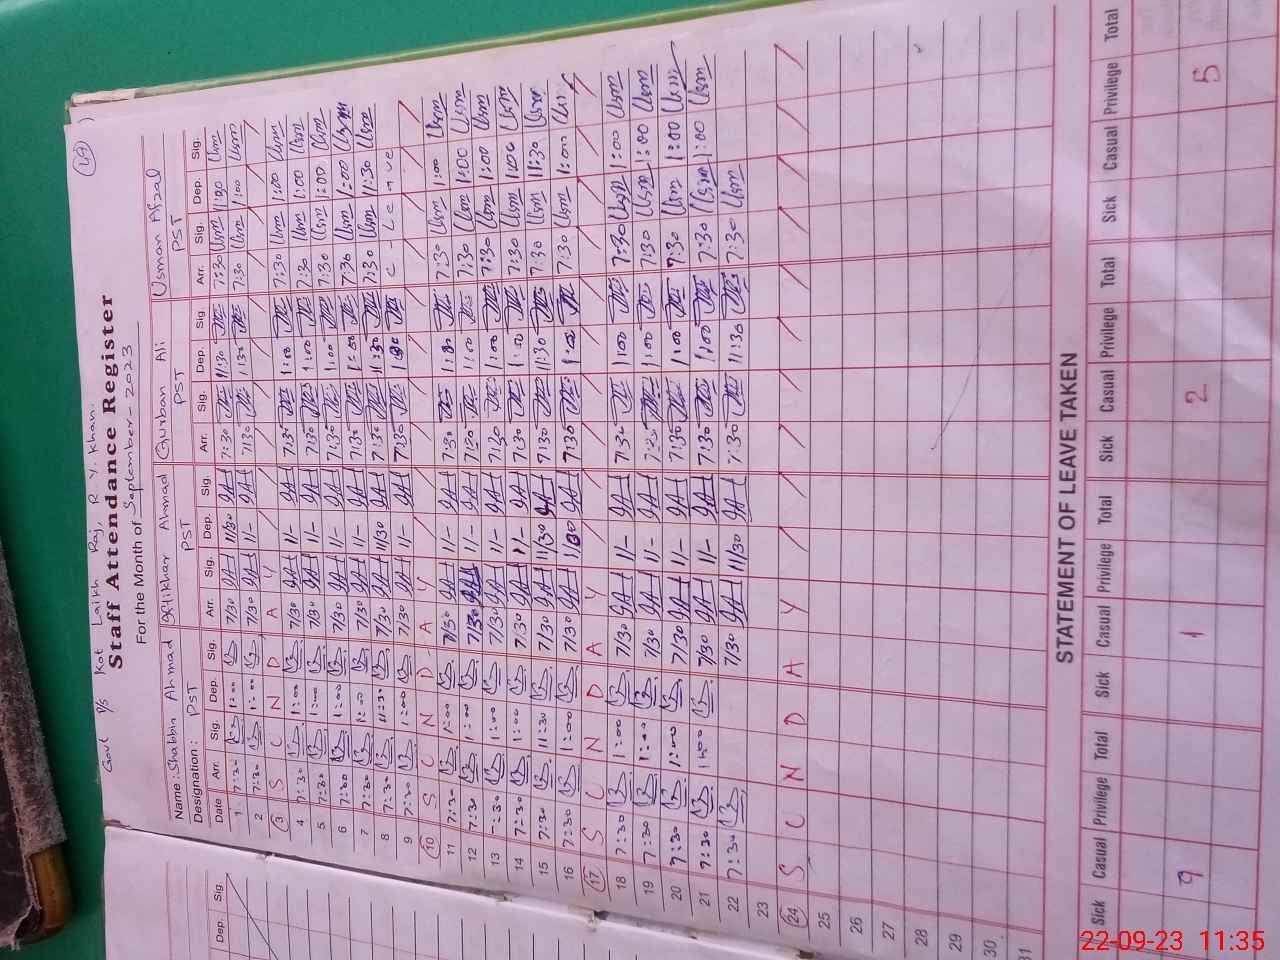 Govt P/S Kot Laikh Raj, R. Y. Khan.
Staff Attendance Register
For the Month of September-2023
Name: Shabbir Ahmad Iftikhar Ahmad Qurban Ali Usman Afzal
Designation: PST PST PST PST
Date Arr. Sig. Dep. Sig. Arr. Sig. Dep. Sig. Arr. Sig. Dep. Sig. Arr. Sig. Dep. Sig.
1 7:30 7/30 11/30 7:30 11:30 7:30 Usm Usm
2 7:30 1:00 7/30 11/- 7:30 7:30 Usm 1:00 Usm
3 S U N D A Y
4 7:30 1:00 7/30 11/- 7:30 1:00 7:30 Usm 1:00 Usm
5 7:30 1:00 7/30 11/- 7:30 1:00 7:30 Usm 1:00 Usm
6 7:30 1:00 7/30 11/- 7:30 1:00 7:30 Usm 1:00 Usm
7 7:30 1:00 7/30 11/- 7:30 1:00 7:30 Usm 1:00 Usm
8 7:30 11:30 7/30 11/30 7:30 11:30 7:30 Usm 11:30 Usm
9 7:30 1:00 7/30 11/- 7:30 C - Leave
10 S U N D A Y
11 7:30 1:00 7/30 11/- 7:30 1:00 7:30 Usm 1:00 Usm
12 7:30 1:00 7/30 11/- 7:30 1:00 7:30 Usm 1:00 Usm
13 7:30 1:00 7/30 11/- 7:30 1:00 7:30 Usm 1:00 Usm
14 7:30 1:00 7/30 11/- 7:30 1:00 7:30 Usm 1:00 Usm
15 7:30 11:30 7/30 11/30 7:30 11:30 7:30 Usm 11:30 Usm
16 7:30 1:00 7/30 7:30 1:00 7:30 Usm 1:00 Usm
17 S U N D A Y
18 7:30 1:00 7/30 11/- 7:30 1:00 7:30 Usm 1:00 Usm
19 7:30 1:00 7/30 11/- 7:30 1:00 7:30 Usm 1:00 Usm
20 7:30 1:00 7/30 11/- 7:30 1:00 7:30 Usm 1:00 Usm
21 7:30 1:00 7/30 11/- 7:30 1:00 7:30 Usm 1:00 Usm
22 7:30 7/30 11/30 7:30 11:30 7:30 Usm
23
24 S U N D A Y
25
26
27
28
29
30
31
STATEMENT OF LEAVE TAKEN
Sick Casual Privilege Total Sick Casual Privilege Total Sick Casual Privilege Total Sick Casual Privilege Total
9 1 2 5
Dep. Sig.
22-09-23 11:35